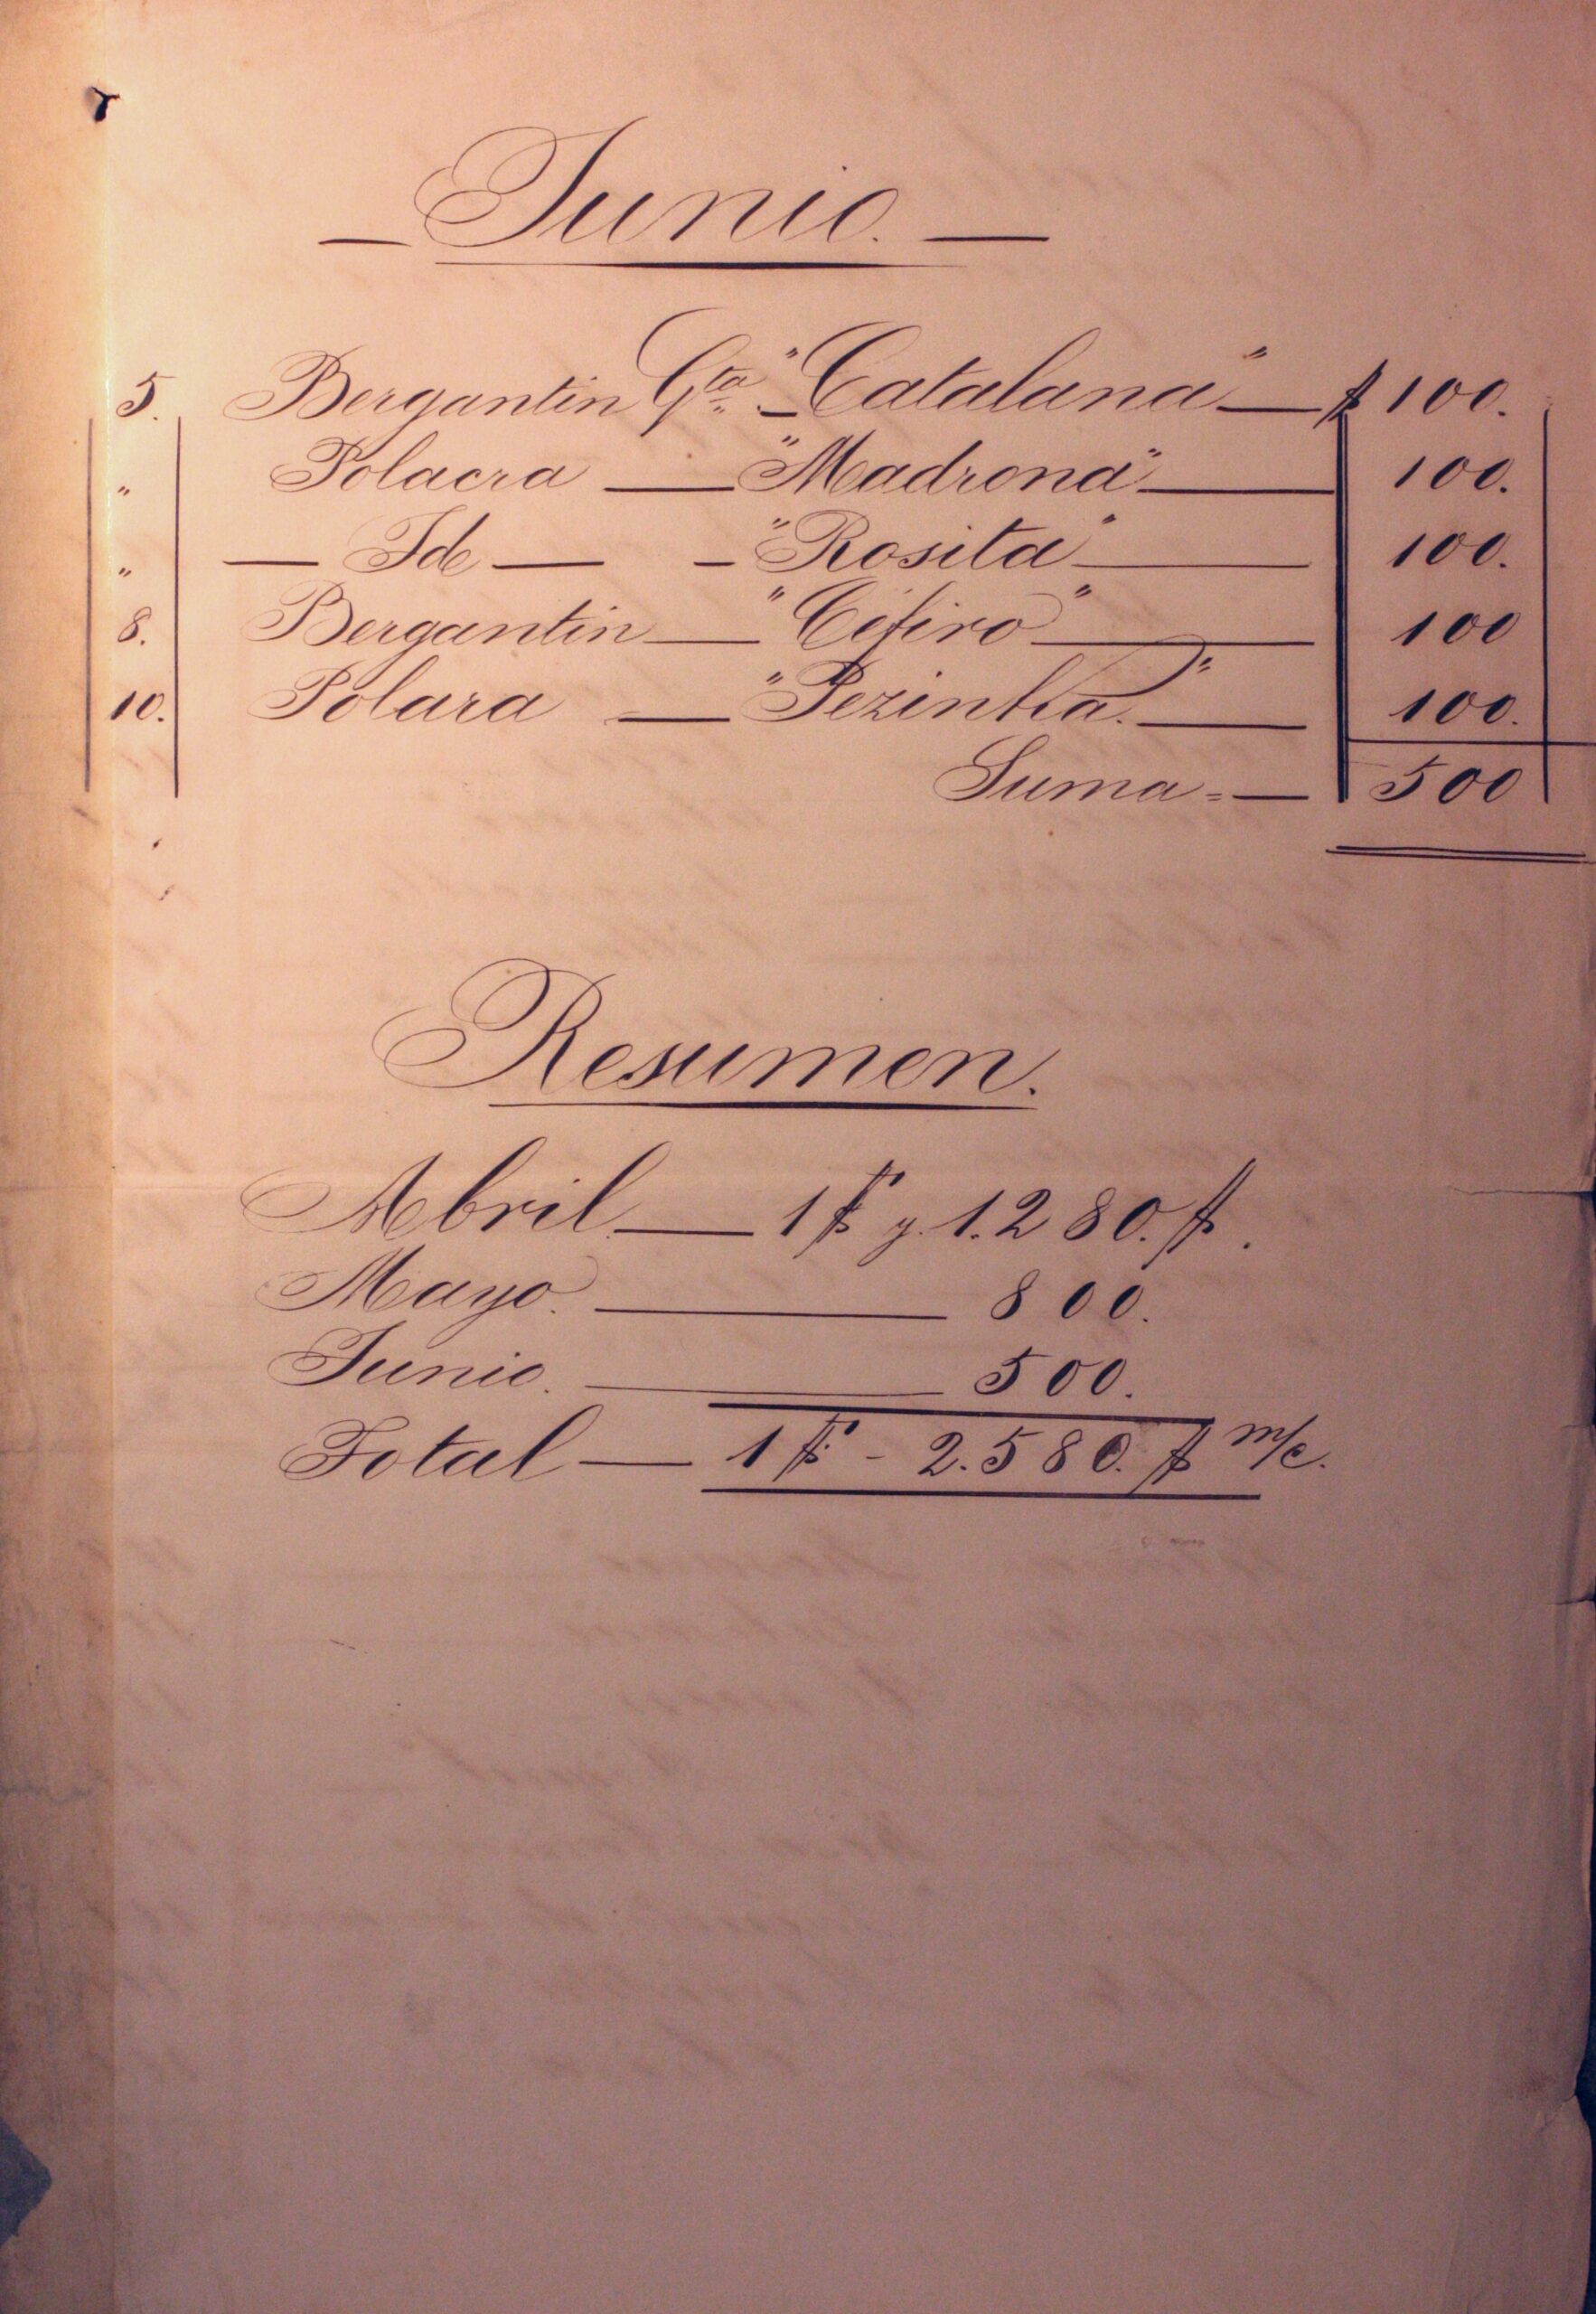 — Junio. —
5. Bergantin Gta. — "Catalana" — $ 100.
" Polacra — "Madrona" — 100.
" — Ide — — "Rosita" — 100.
8. Bergantin — "Céfiro" — 100
10. Polara — "Pezinha." — 100.
Suma = — 500
Resumen.
Abril. — 1 $F y. 1.280. $.
Mayo. — 800.
Junio. — 500.
Total — 1 $F - 2.580. $ m/c.